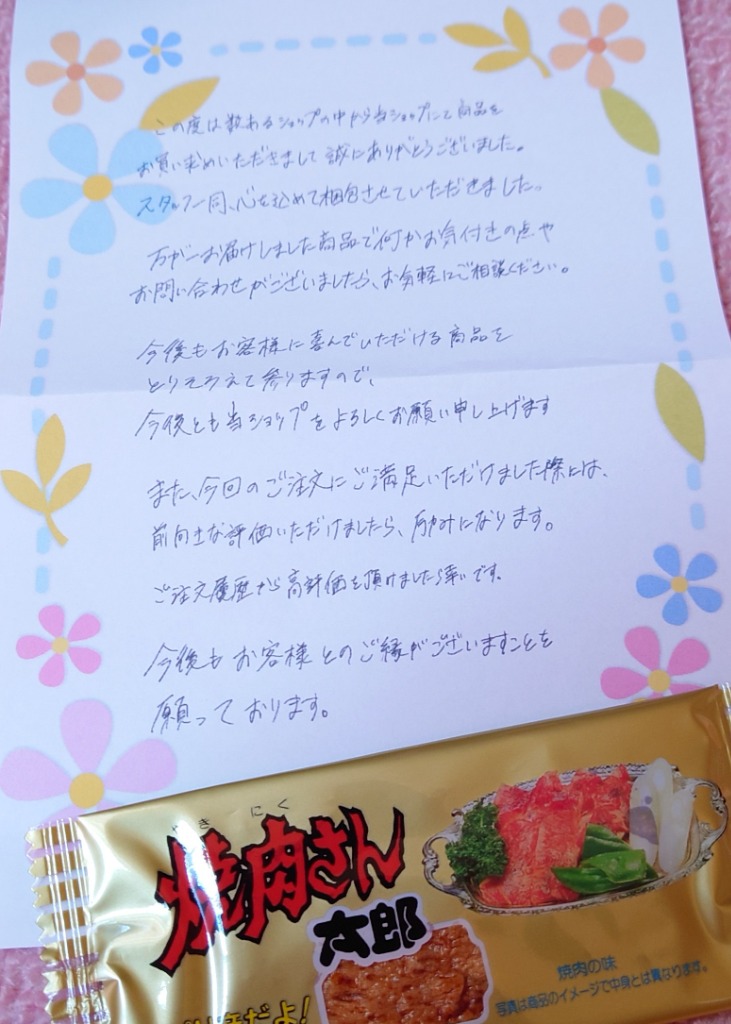 この度は数あるショップの中から当ショップにて商品を
お買い求めいただきまして誠にありがとうございました。
スタッフ一同、心を込めて梱包させていただきました。
万が一お届けしました商品で何かお気付きの点や
お問い合わせがございましたら、お気軽にご相談ください。
今後もお客様に喜んでいただける商品を
とりそろえて参りますので、
今後とも当ショップをよろしくお願い申し上げます
また、今回のご注文にご満足いただけました際には、
前向きな評価いただけましたら、励みになります。
ご注文履歴から高評価を頂けましたら幸いです。
今後もお客様とのご縁がございますことを
願っております。
やきにく
焼肉さん
太郎
だよ!
焼肉の味
写真は商品のイメージで中身とは異なります。